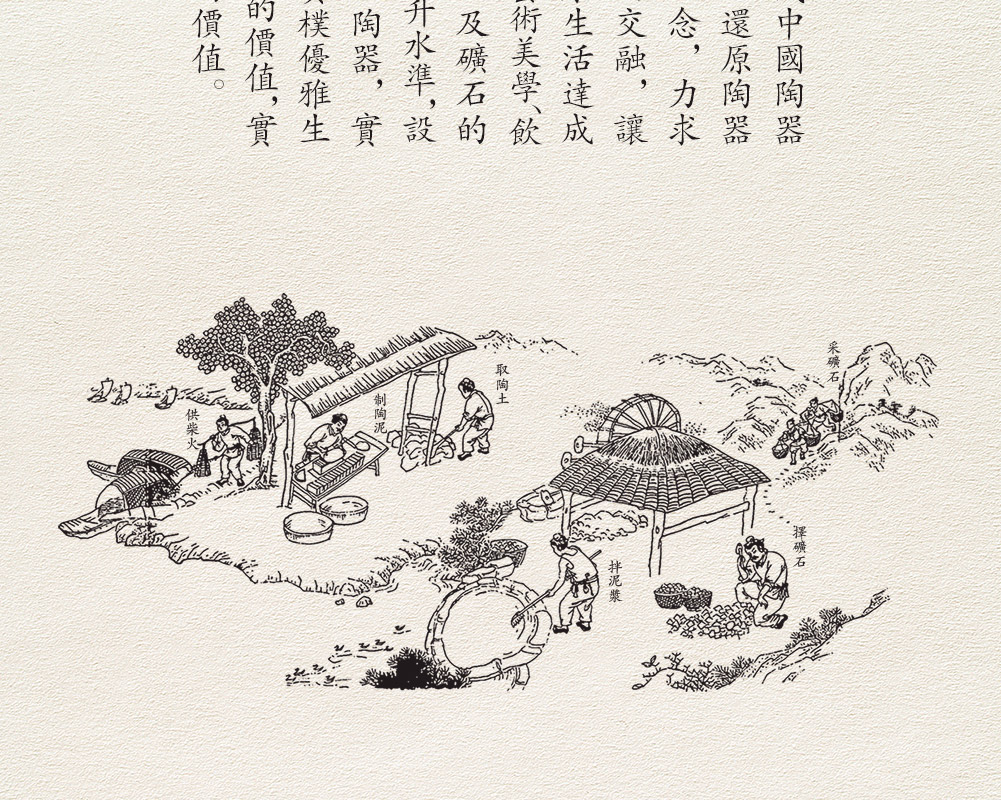 中國陶器
還原陶器
念，力求
交融，讓
生活達成
術美學、飲
及礦石的
升水準，設
陶器，實
樸優雅生
的價值，實
價值。
采礦石
擇礦石
拌泥漿
取陶土
制陶泥
供柴火